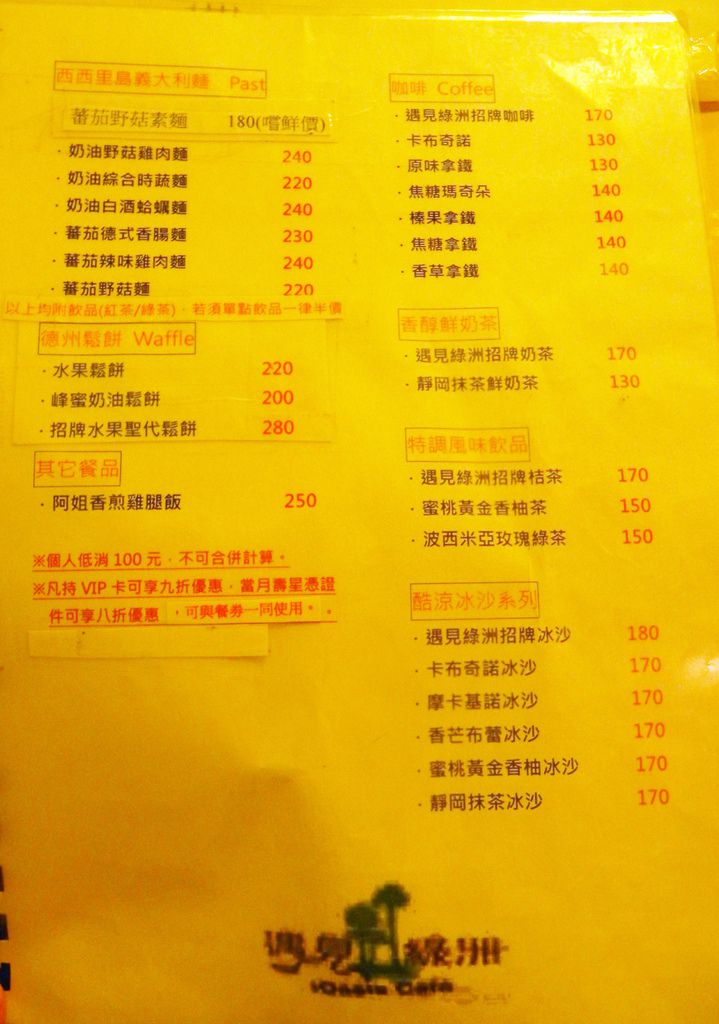 西西里島義大利麵 Past
蕃茄野菇素麵 180(嚐鮮價)
·奶油野菇雞肉麵 240
·奶油綜合時蔬麵 220
·奶油白酒蛤蠣麵 240
·蕃茄德式香腸麵 230
·蕃茄辣味雞肉麵 240
·蕃茄野菇麵 220
以上均附飲品(紅茶/綠茶)，若須單點飲品一律半價
德州鬆餅 Waffle
·水果鬆餅 220
·峰蜜奶油鬆餅 200
·招牌水果聖代鬆餅 280
其它餐品
·阿姐香煎雞腿飯 250
※個人低消 100 元，不可合併計算。
※凡持 VIP 卡可享九折優惠，當月壽星憑證
件可享八折優惠，可與餐券一同使用。。
咖啡 Coffee
·遇見綠洲招牌咖啡 170
·卡布奇諾 130
·原味拿鐵 130
·焦糖瑪奇朵 140
·榛果拿鐵 140
·焦糖拿鐵 140
·香草拿鐵 140
香醇鮮奶茶
·遇見綠洲招牌奶茶 170
·靜岡抹茶鮮奶茶 130
特調風味飲品
·遇見綠洲招牌桔茶 170
·蜜桃黃金香柚茶 150
·波西米亞玫瑰綠茶 150
酷涼冰沙系列
·遇見綠洲招牌冰沙 180
·卡布奇諾冰沙 170
·摩卡基諾冰沙 170
·香芒布蕾冰沙 170
·蜜桃黃金香柚冰沙 170
·靜岡抹茶冰沙 170
遇見綠洲
iOasis Café